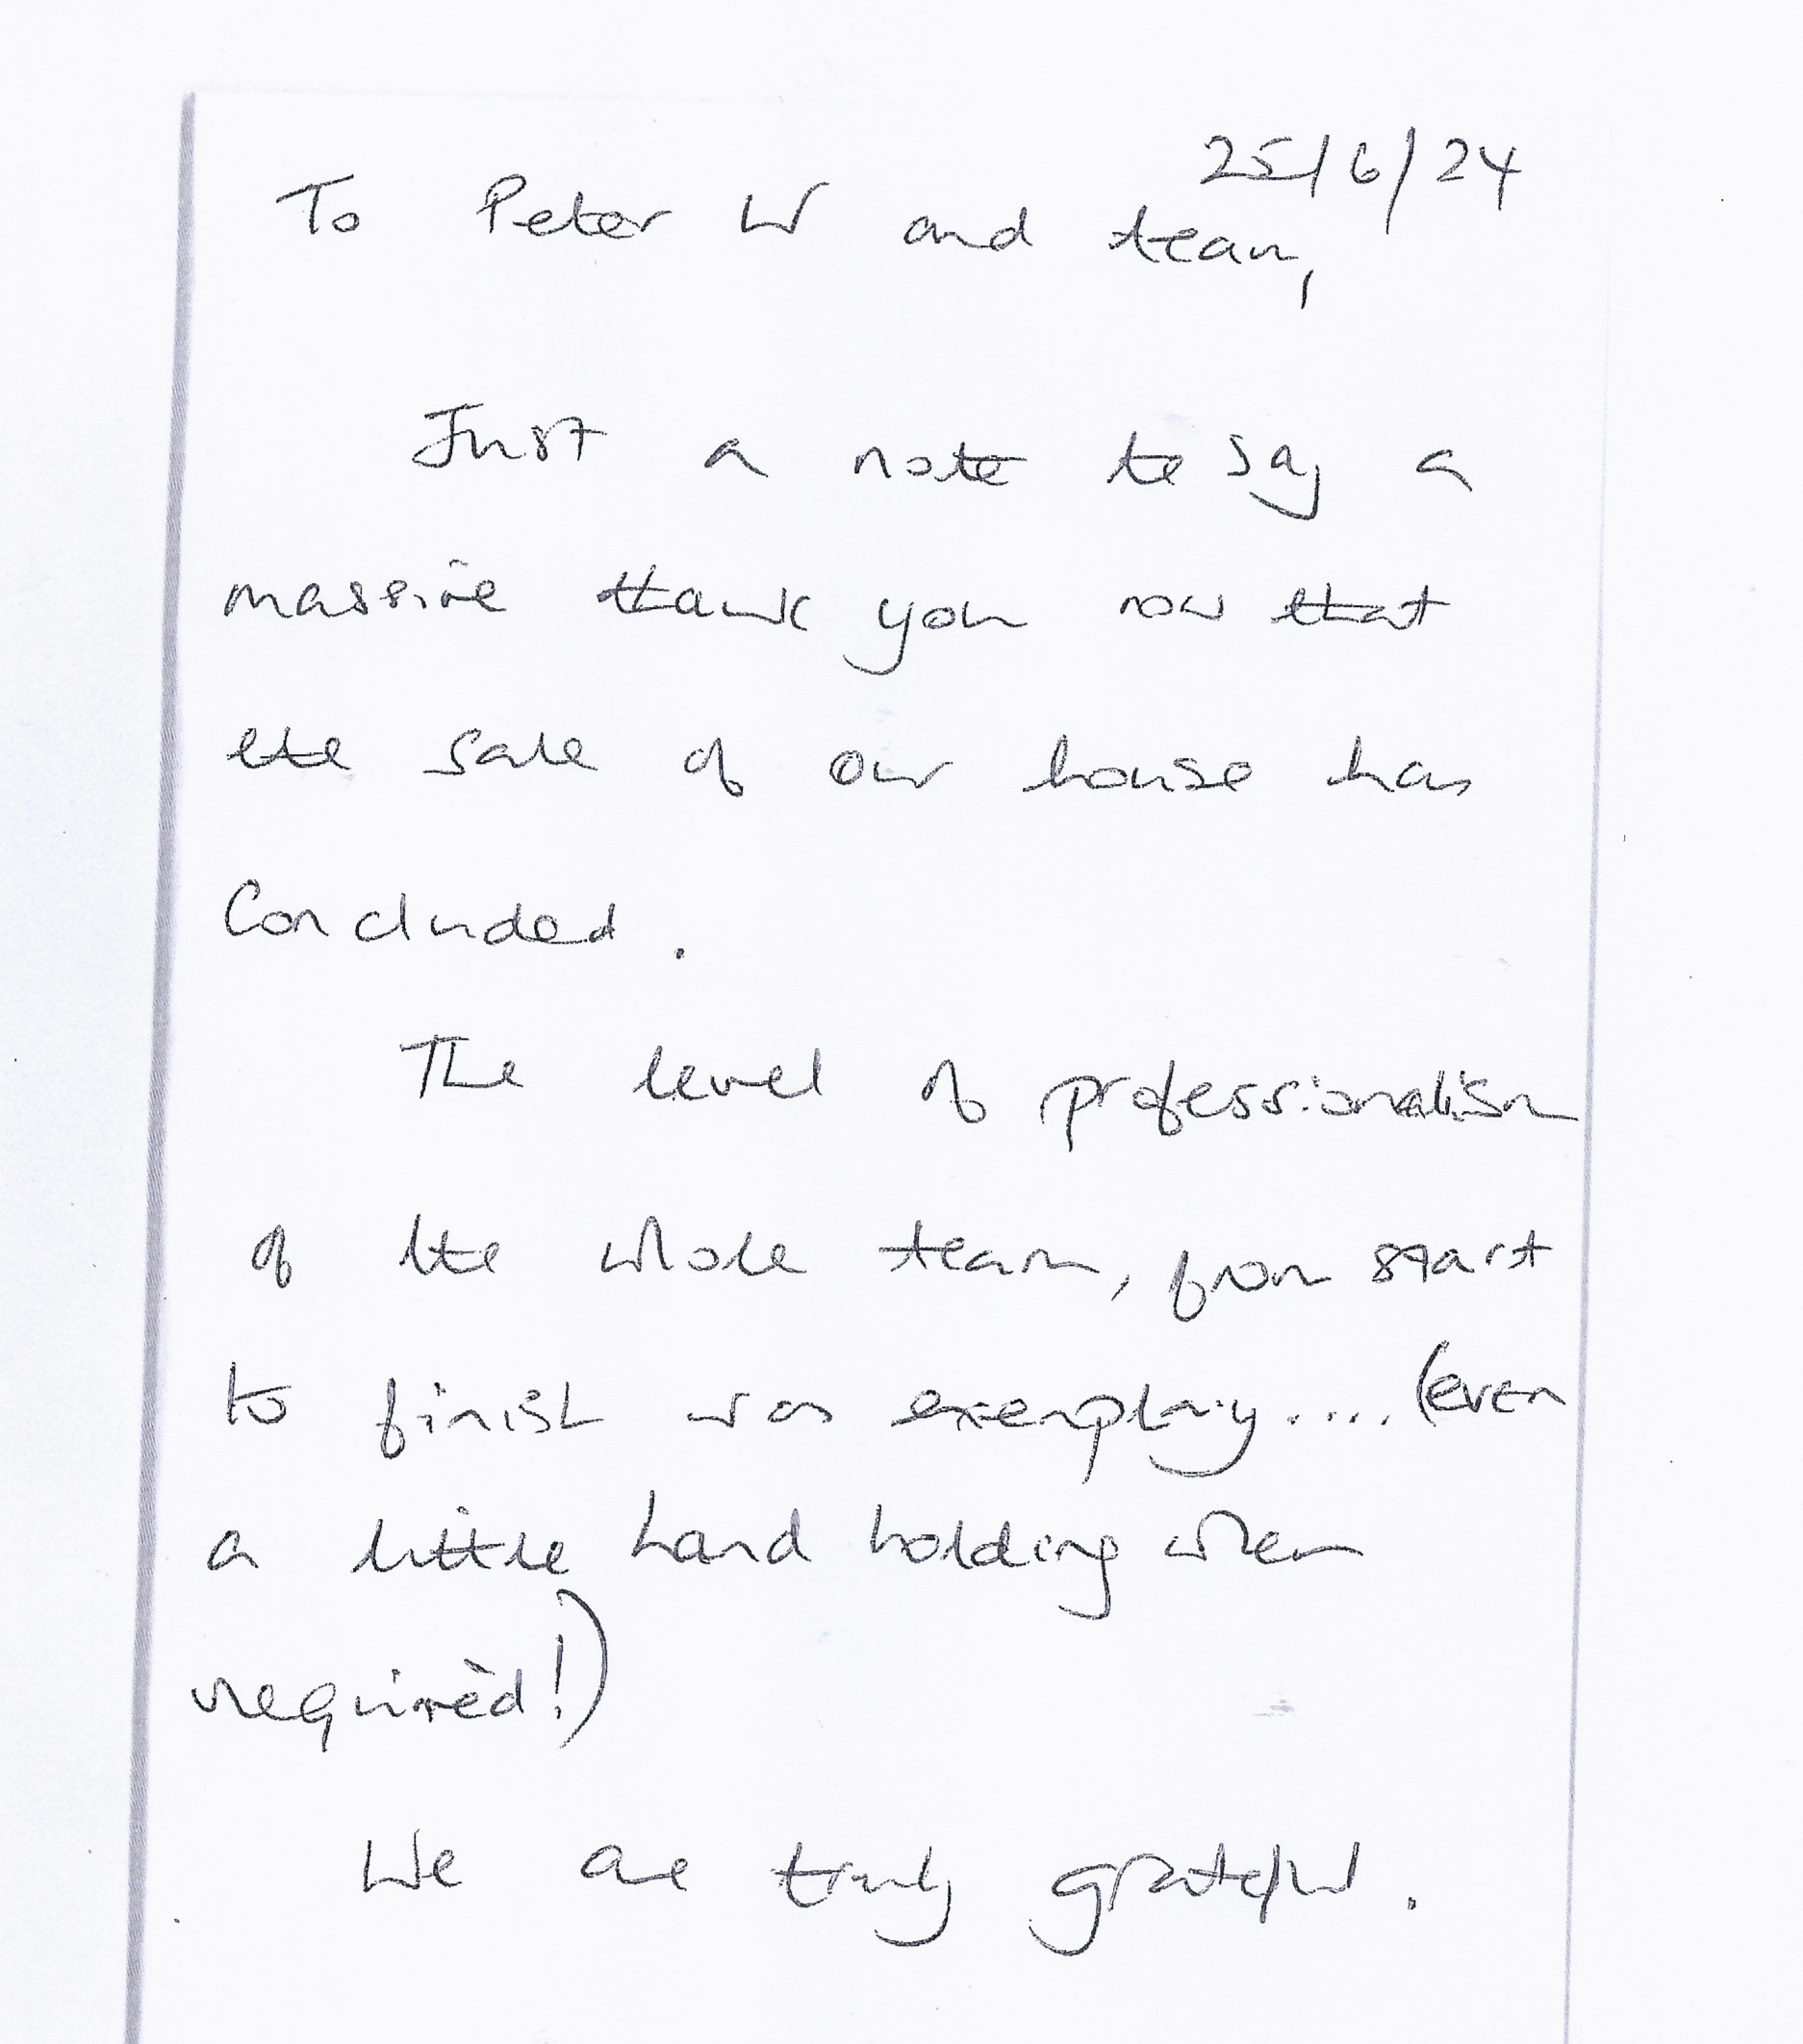 25/6/24
To Peter W and team,
Just a note to say a
massive thank you now that
the sale of our house has
Concluded.
The level of professionalism
of the whole team, from start
to finish was exemplary.... (even
a little hand holding when
required!)
We are truly grateful.